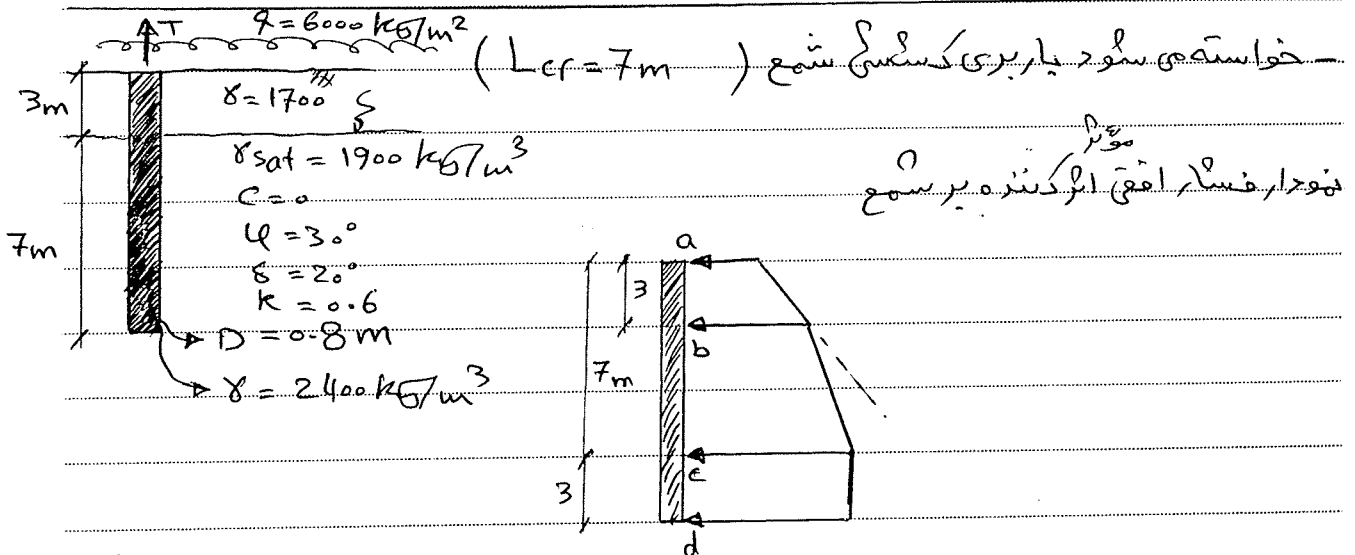 T q = 6000 kg/m²
- خواسته می شود باربری کششی شمع (Lcr = 7m)
3m
γ = 1700
γsat = 1900 kg/m³
C = 0
φ = 30°
δ = 20°
k = 0.6
7m
D = 0.8 m
γ = 2400 kg/m³
نمودار فشار افقی مؤثر اثر کننده بر شمع
a
3
b
7m
c
3
d